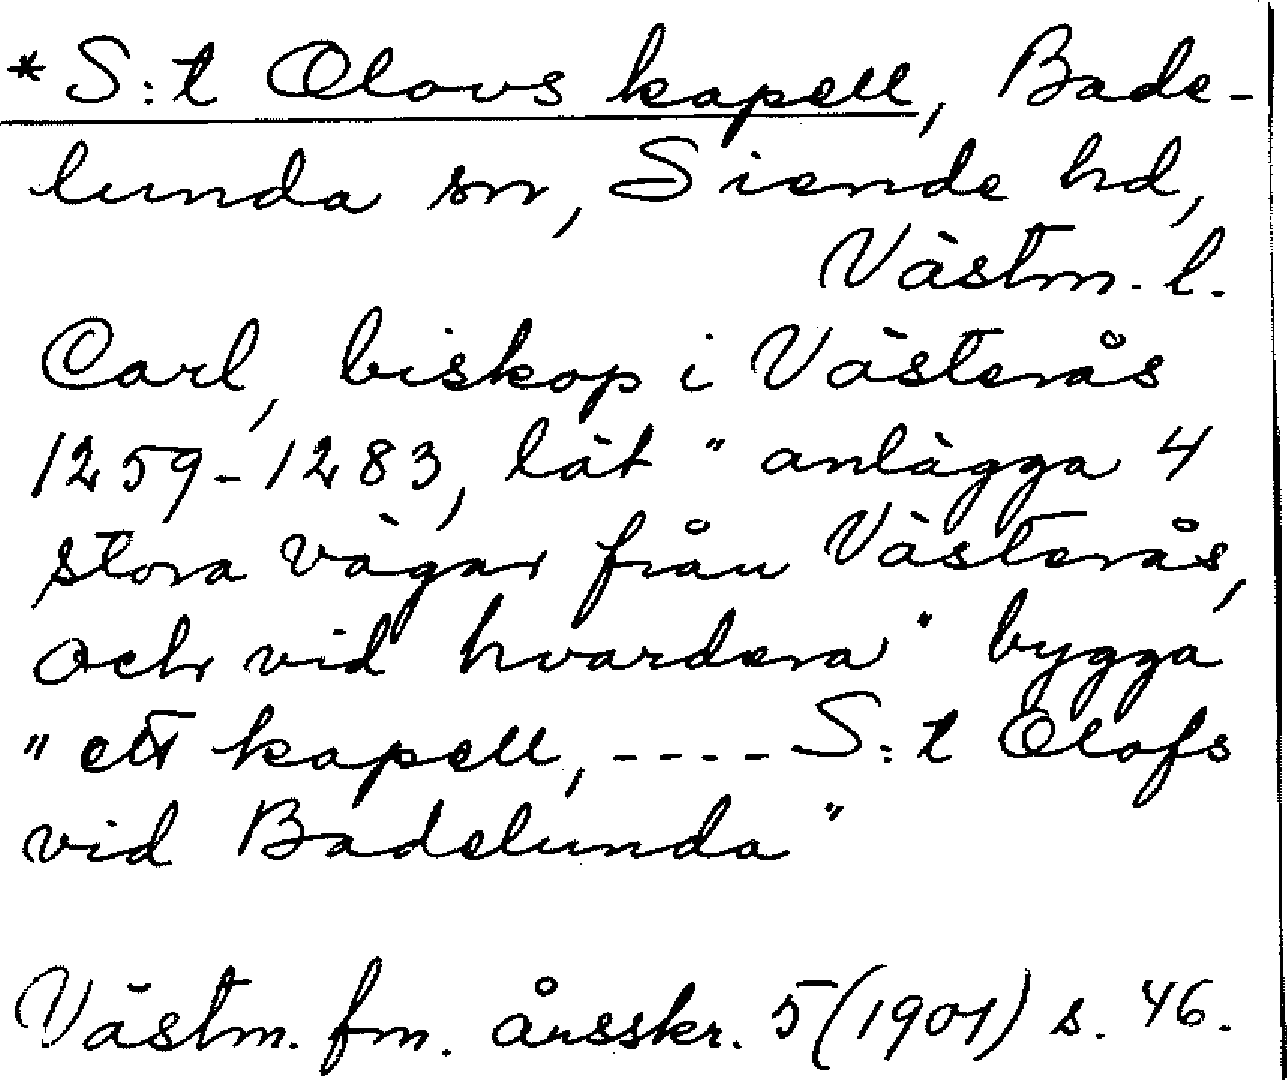 *S:t Olovs kapell, Bade-
lunda sn, Siende hd,
Västm. l.
Carl, biskop i Västerås
1259-1283, lät "anlägga 4
stora vägar från Västerås,
och vid hvardera" bygga
"ett kapell, ---- S:t Olofs
vid Badelunda"
Västm. fm. årsskr. 5 (1901) s. 46.